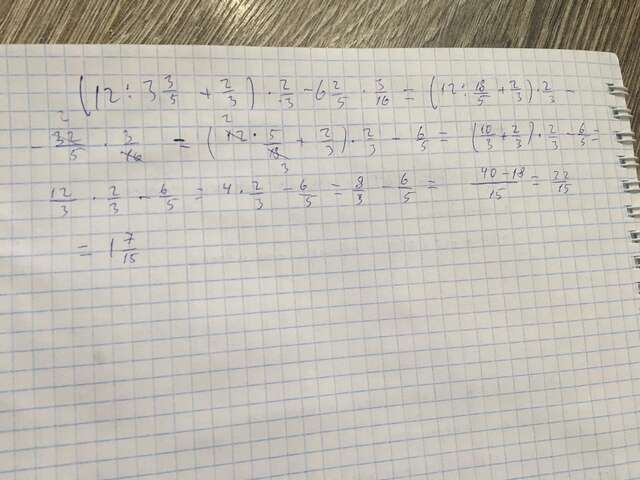 (12 : 3 3/5 + 2/3) · 2/3 - 6 2/5 · 3/16 = (12 : 18/5 + 2/3) · 2/3 -
- 32/5 · 3/16 = (12 · 5/18 + 2/3) · 2/3 - 6/5 = (10/3 + 2/3) · 2/3 - 6/5 =
12/3 · 2/3 - 6/5 = 4 · 2/3 - 6/5 = 8/3 - 6/5 = 40-18/15 = 22/15
= 1 7/15